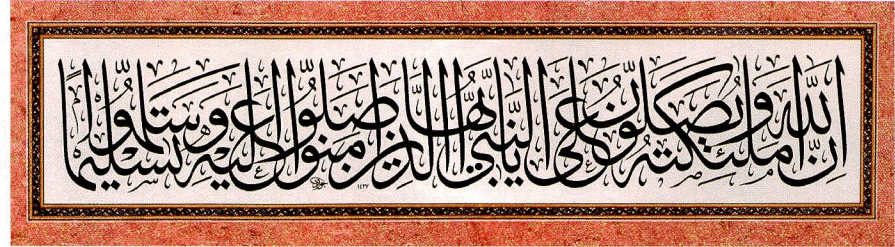 إن الله وملئكته يصلون على النبي يأيها الذين ءامنوا صلوا عليه وسلموا تسليما
١٤٣٧